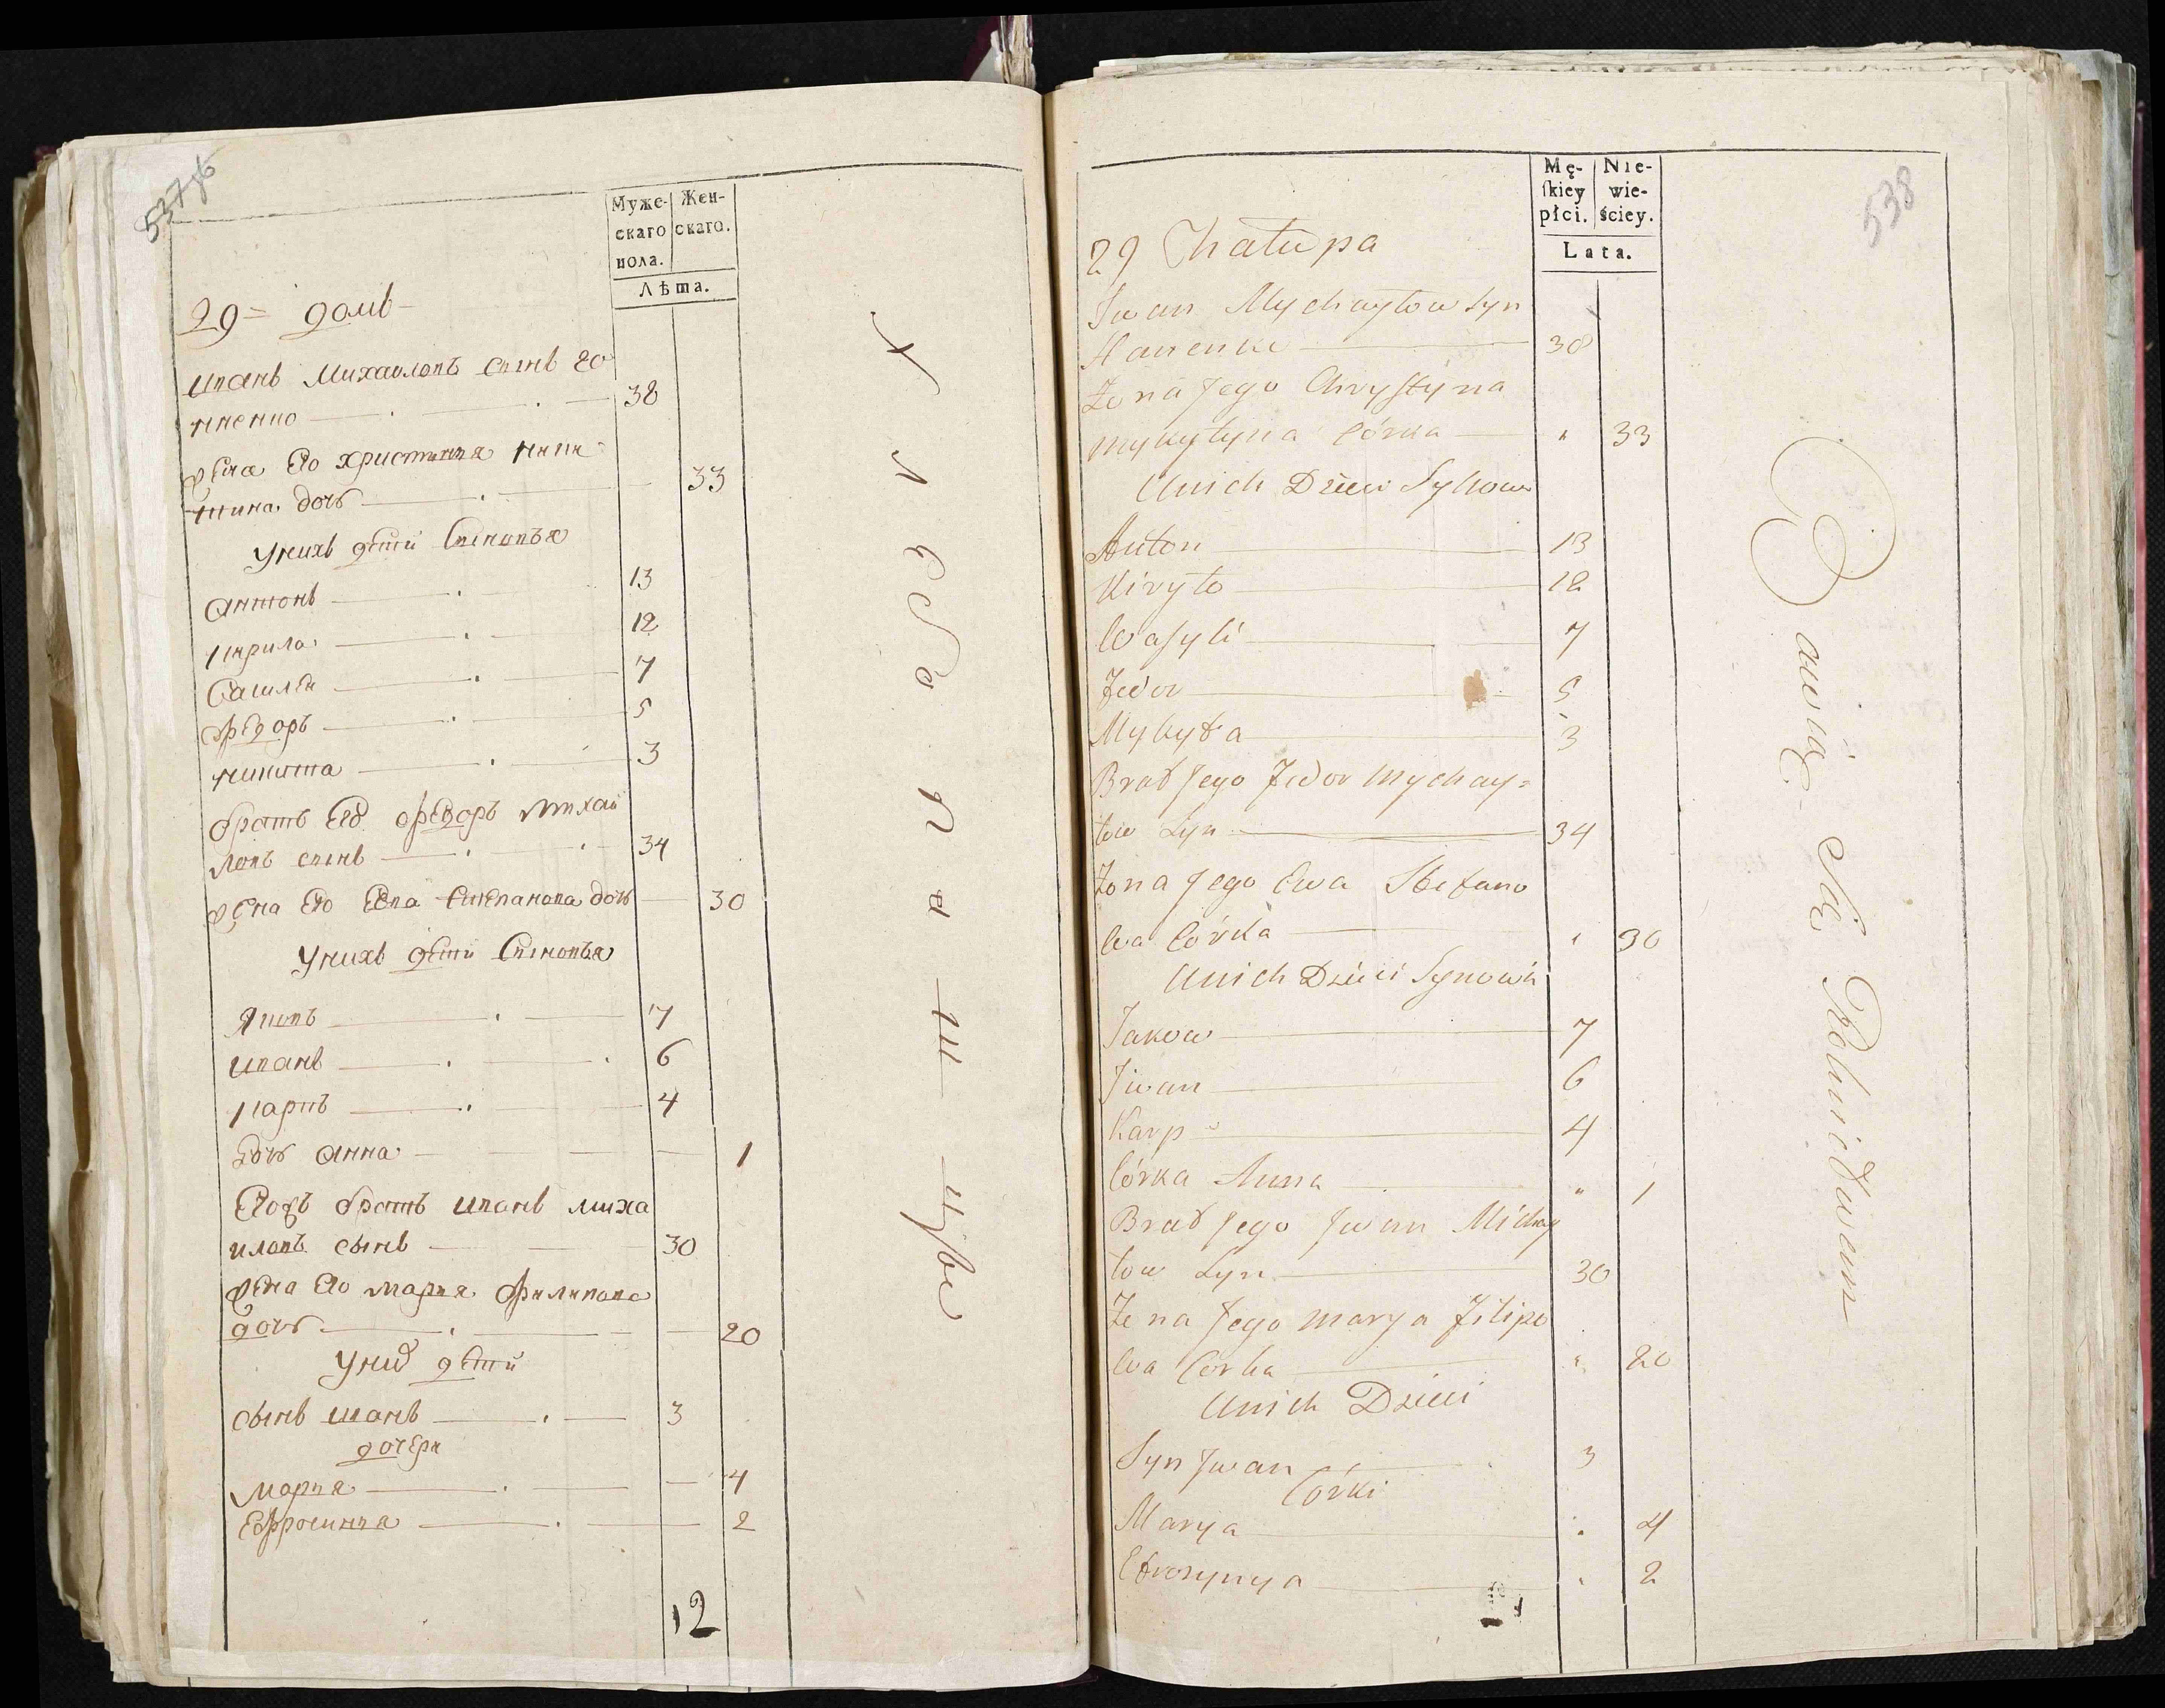 537об
Муже-
скаго
пола.
Жен-
скаго.
Лѣта.
29= домъ
Иванъ Михаиловъ Сынъ Го
ненко 38
жена Его христиния ники
тина дочь 33
У нихъ дѣти Сыновья
Антонъ 13
кирила 12
Василеи 7
Федоръ 5
никита 3
братъ Его Федоръ Михаи
ловъ сынъ 34
жена Его Ева Степанова дочь 30
У нихъ дѣти Сыновья
Яковъ 7
иванъ 6
карпъ 4
дочь анна 1
братъ иванъ миха
иловъ сынъ 30
жена Его Мария Филипова
дочь 20
дѣти
сынъ иванъ 3
дочери
Мария 4
Ефросиния 2
12
538
Mę-
ſkiey
płci.
Nie-
wie-
ściey.
Lata.
29 Chałupa
Jwan Mychayłow Syn
Honenko 38
Żona Jego Chrystyna
Mykytyna Córka " 33
Unich Dzieci Synowie
Anton 13
Kiryło 12
Wasyli 7
Fedor 5
Mykyta 3
Brat Jego Fedor Mychay=
łow Syn 34
Żona Jego Ewa Stefano
wa Córka " 30
Unich Dzieci Synowie
Jakow 7
Jwan 6
Karp 4
Córka Anna " 1
Brat Jego Jwan Michay
łow Syn 30
Żona Jego Marya Filipo
wa Corka " 20
Unich Dzieci
Syn Jwan 3
Córki
Marya " 4
Efrozynya " 2